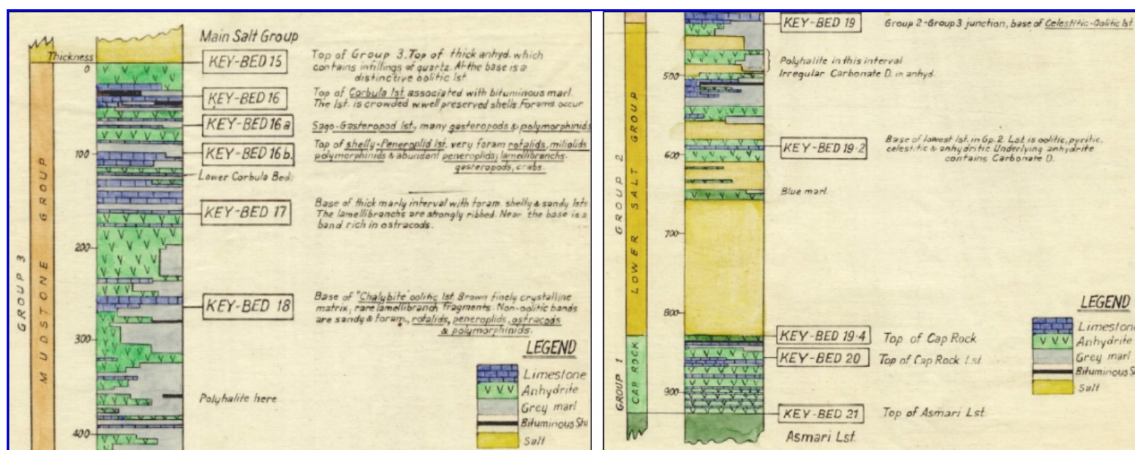 Main Salt Group
Thickness
0
100
200
300
400
GROUP 3
MUDSTONE GROUP
KEY-BED 15
Top of Group 3. Top of thick anhyd. which
contains infillings of quartz. At the base is a
distinctive oolitic lst.
KEY-BED 16
Top of Corbula lst associated with bituminous marl.
The lst. is crowded w. well preserved shells. Forams occur
KEY-BED 16a
Sago-Gasteropod lst., many gasteropods & polymorphinids
KEY-BED 16b
Top of shelly-Peneroplid lst. very foram rotalids, miliolids
polymorphinids & abundant peneroplids; lamellibranchs.
gasteropods, crabs.
Lower Corbula Bed.
KEY-BED 17
Base of thick marly interval with foram. shelly & sandy lsts
The lamellibranchs are strongly ribbed. Near the base is a
band rich in ostracods.
KEY-BED 18
Base of "Chalybite" oolitic lst. Brown finely crystalline
matrix, rare lamellibranch fragments. Non-oolitic bands
are sandy & foram., rotalids, peneroplids, ostracods
& polymorphinids.
Polyhalite here
LEGEND
Limestone
Anhydrite
Grey marl
Bituminous Sh
Salt
500
600
700
800
900
GROUP 2
LOWER SALT GROUP
GROUP 1
CAP ROCK
KEY-BED 19
Group 2-Group 3 junction, base of Celestitic-Oolitic lst
Polyhalite in this interval
Irregular Carbonate D. in anhyd.
KEY-BED 19·2
Base of lowest lst. in Gp. 2. Lst is oolitic, pyritic,
celestitic & anhydritic Underlying anhydrite
contains Carbonate D.
Blue marl.
KEY-BED 19·4
Top of Cap Rock
KEY-BED 20
Top of Cap Rock Lst.
KEY-BED 21
Top of Asmari Lst.
Asmari Lst.
LEGEND
Limestone
Anhydrite
Grey marl
Bituminous Sh
Salt